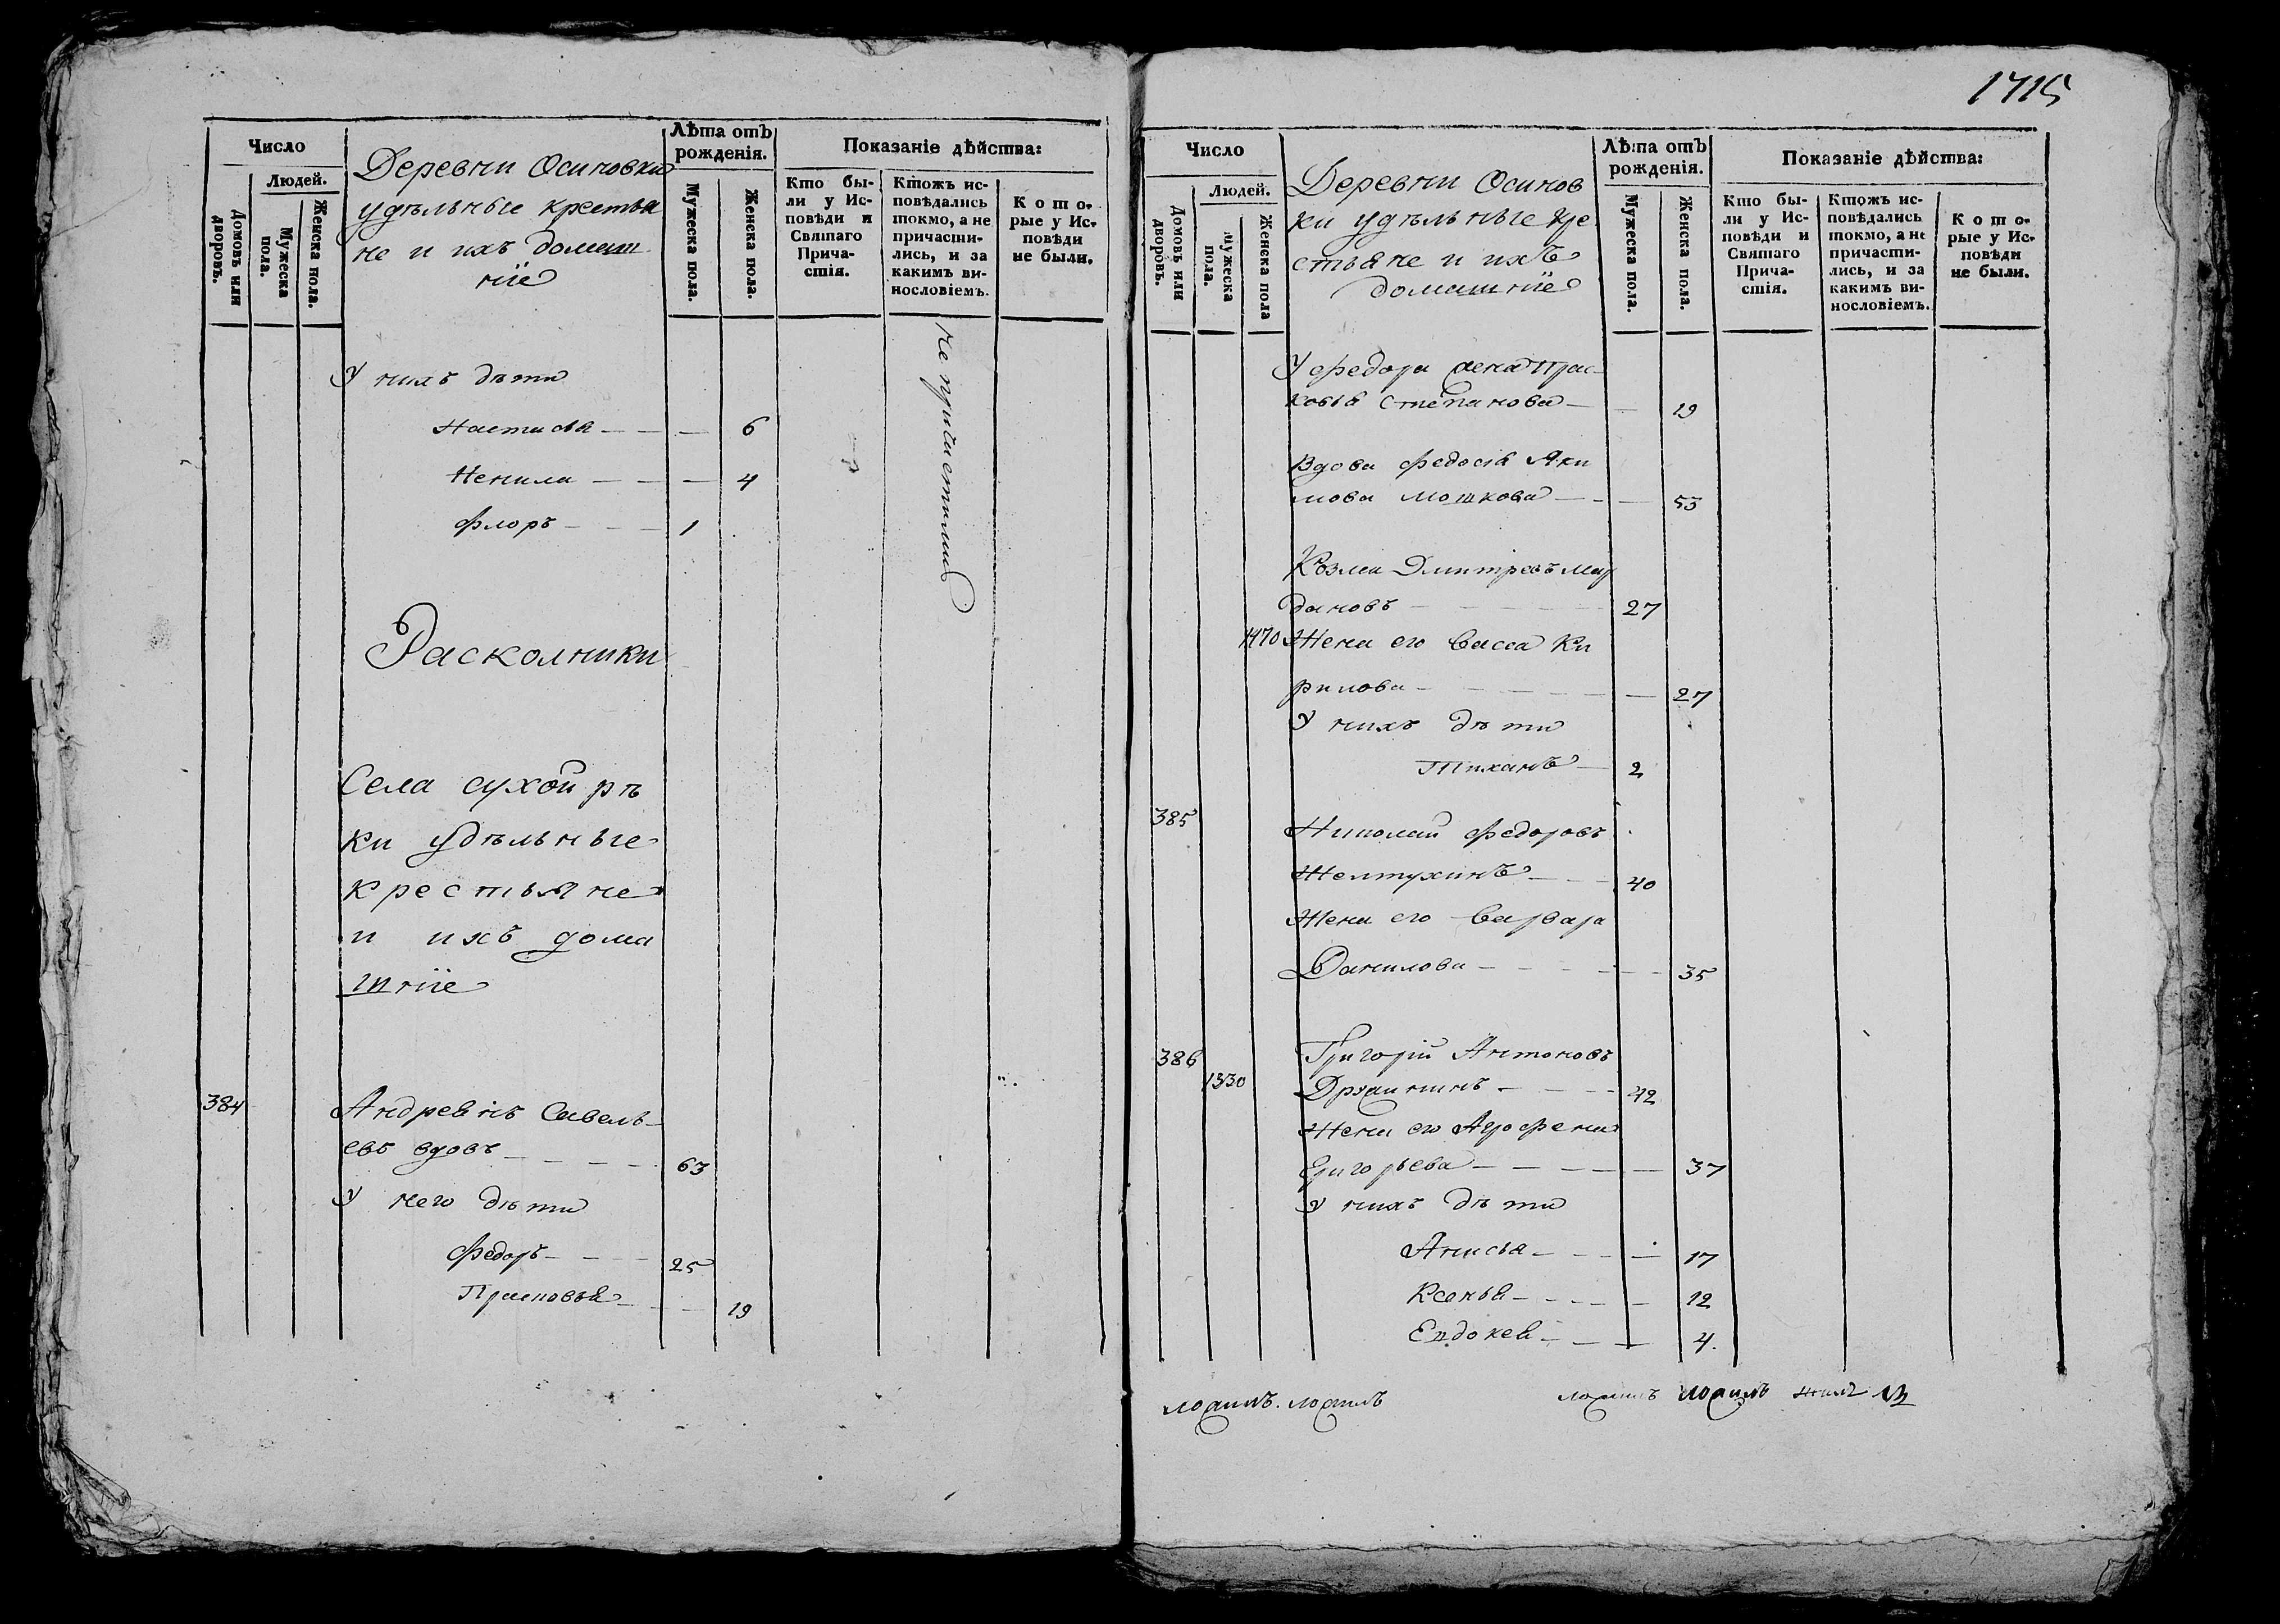 Число
Людей.
Домовъ или дворовъ.
Мужеска пола.
Женска пола.
Деревни Осиновки
удѣльные крестья
не и ихъ домаш
ніе
Лѣта отъ рожденія.
Мужеска пола.
Женска пола.
Показаніе дѣйства:
Кто бы-
ли у Ис-
повѣди и
Святаго
Прича-
стія.
Ктожъ ис-
повѣдались
токмо, а не
причасти-
лись, и за
какимъ ви-
нословіемъ.
Кото-
рые у Ис-
повѣди
не были.
У нихъ дѣти
Настасья — — — 6
Ненила — — — 4
Флоръ — — — 1
Расколники
Села сухой рѣ
ки удѣльные
крестьяне
и ихъ дома
шніе
384 Андреянъ Савель
евъ вдовъ — — — 63
У него дѣти
Федоръ — — — 25
Прасковья — — — 19
1715
Число
Людей.
Домовъ или дворовъ.
Мужеска пола.
Женска пола
Деревни Осинов
ки удѣльные кре
стьяне и ихъ
домашніе
Лѣта отъ рожденія.
Мужеска пола.
Женска пола.
Показаніе дѣйства:
Кто бы-
ли у Ис-
повѣди и
Святаго
Прича-
стія.
Ктожъ ис-
повѣдались
токмо, а не
причасти-
лись, и за
какимъ ви-
нословіемъ.
Кото-
рые у Ис-
повѣди
не были.
У Федора жена Прас
ковья Степанова — — 19
Вдова Федосія Яки
мова Мошкова — — 53
Козма Дмитревъ
— 27
1470 Жена его Васса Ки
рилова — — — 27
У нихъ дѣти
Тиханъ — 2
385 Николай Федоровъ
Желтухинъ — — 40
Жена его Варвара
Данилова — — — 35
386 Григорій Антоновъ
1330 — — 42
Жена его Агрофена
Григорьева — — — 37
У нихъ дѣти
Анисья — — — 17
Ксенья — — — 12
Евдокея — — — 4